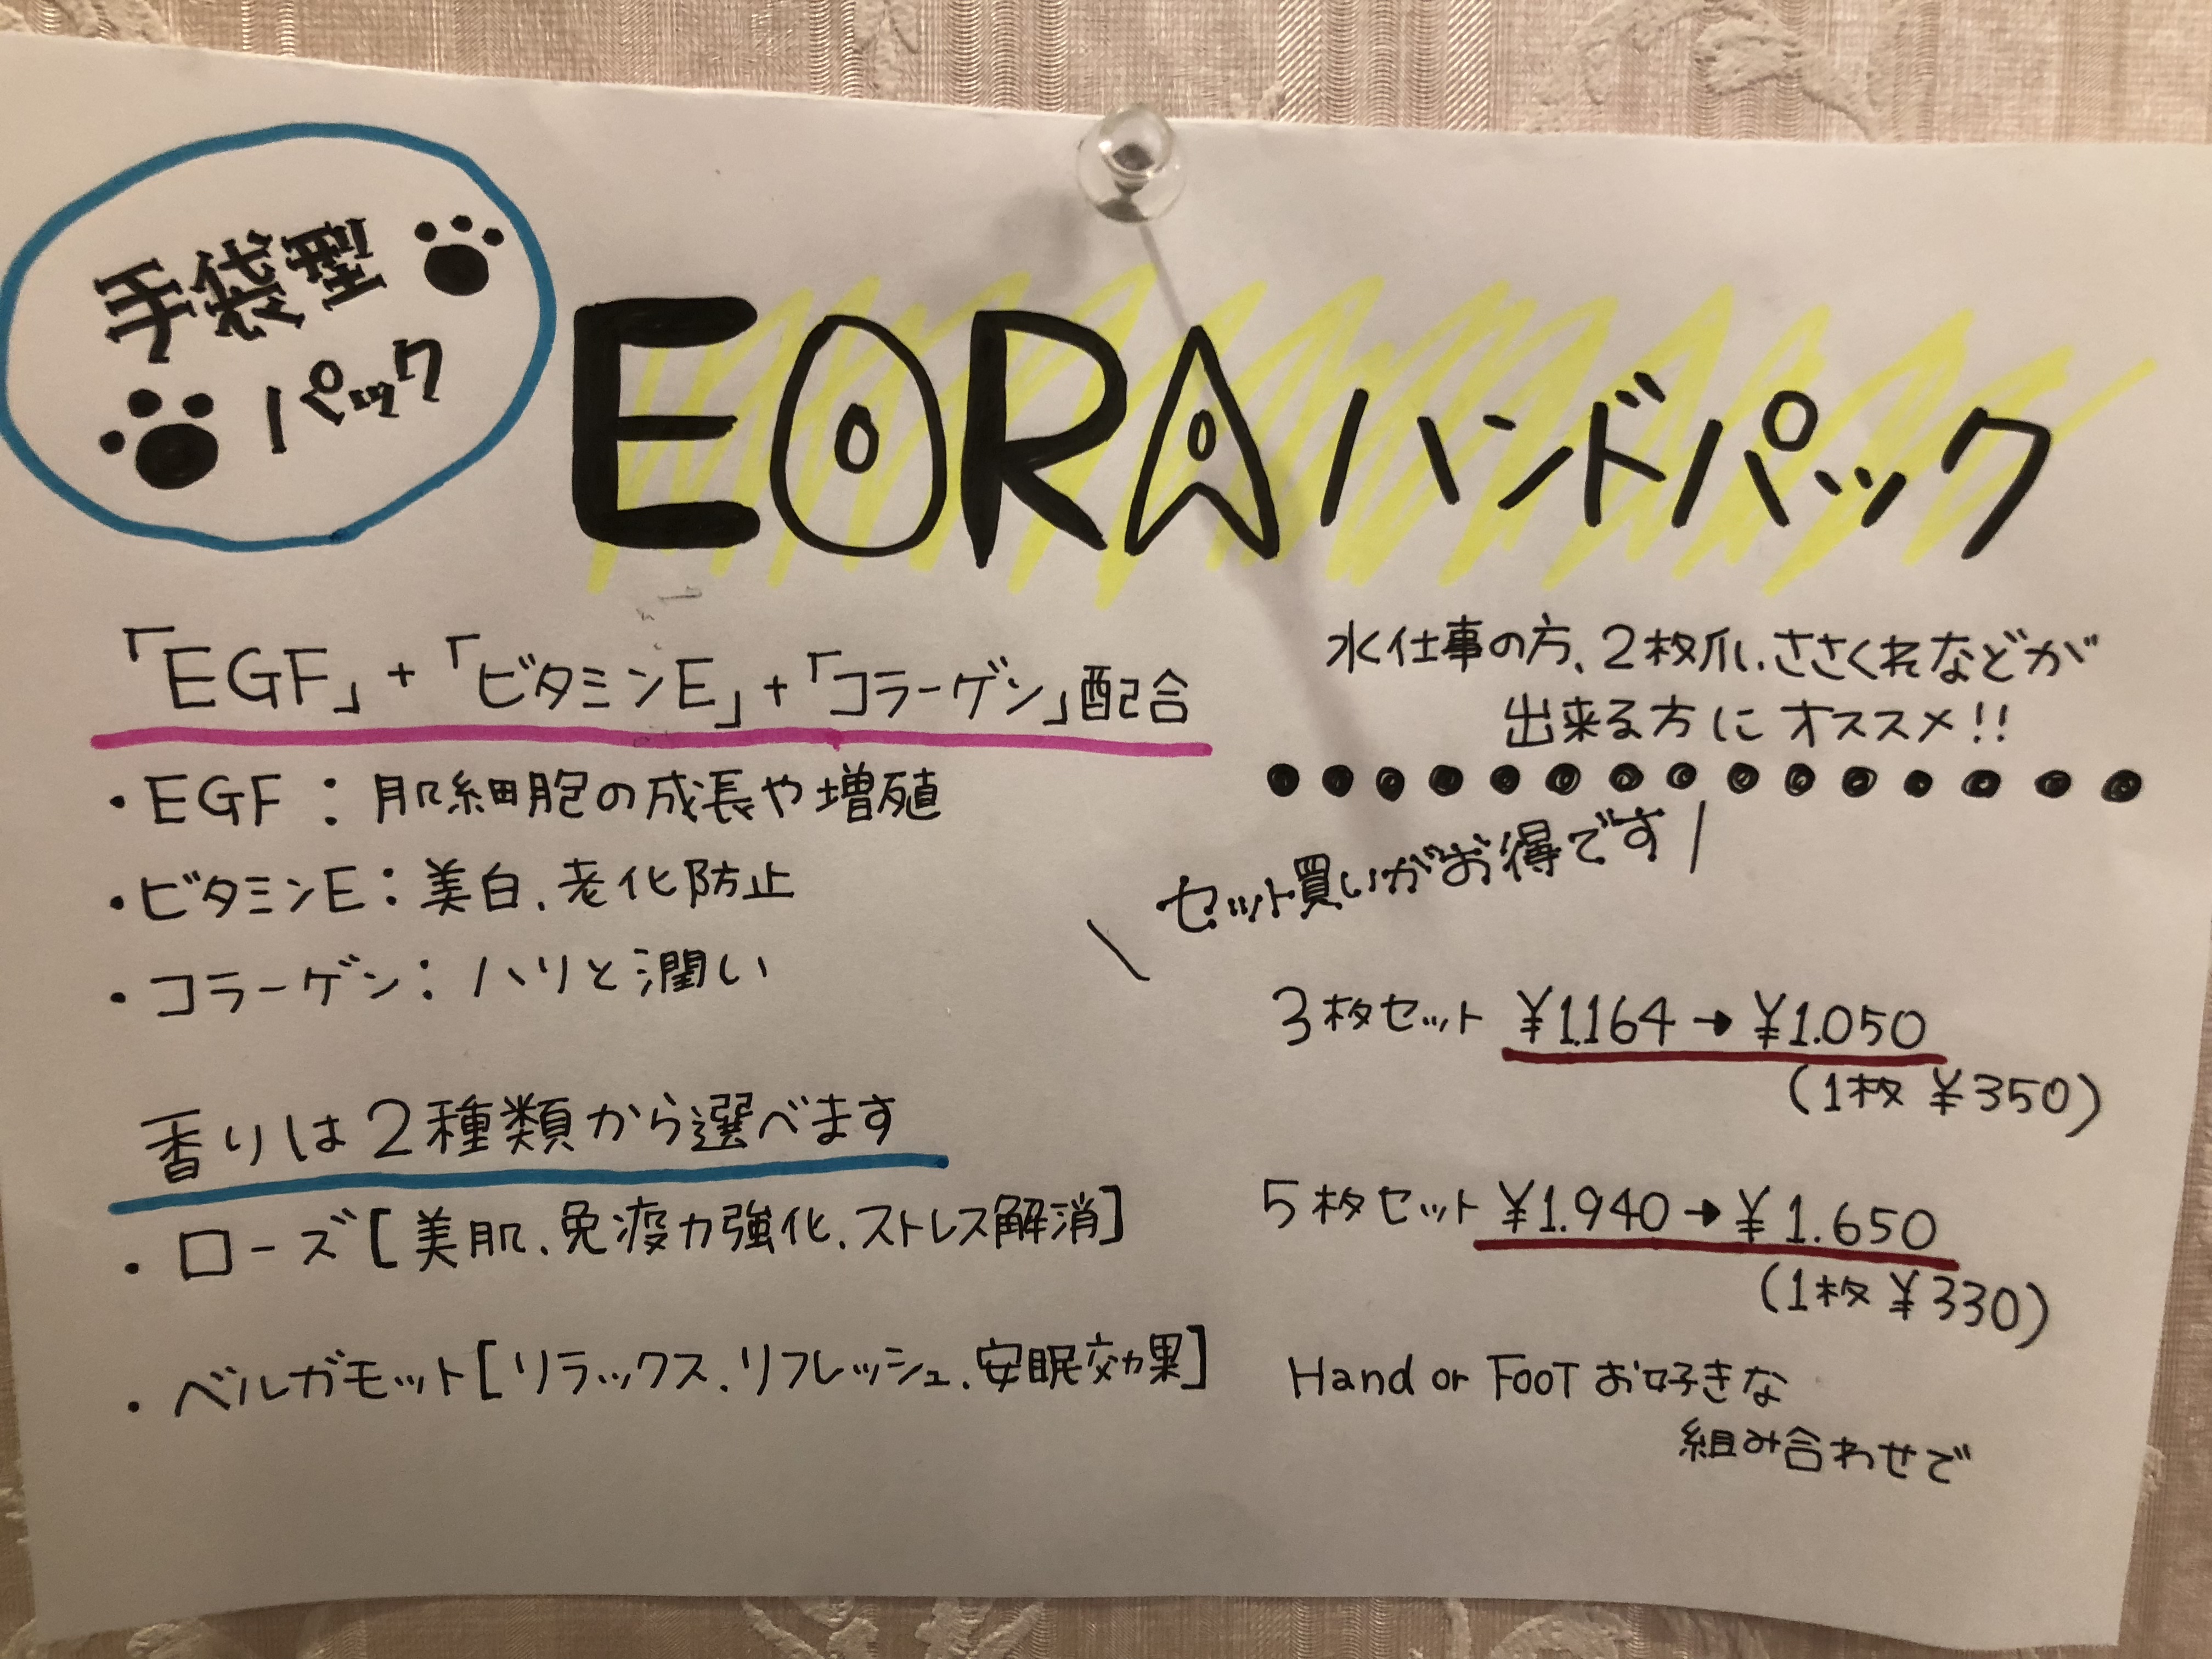 手袋型
パック
EORAハンドパック
「EGF」+「ビタミンE」+「コラーゲン」配合
・EGF：肌細胞の成長や増殖
・ビタミンE：美白、老化防止
・コラーゲン：ハリと潤い
香りは2種類から選べます
・ローズ[美肌、免疫力強化、ストレス解消]
・ベルガモット[リラックス、リフレッシュ、安眠効果]
水仕事の方、2枚爪、ささくれなどが
出来る方にオススメ!!
\ セット買いがお得です /
3枚セット ¥1.164→¥1.050
(1枚 ¥350)
5枚セット ¥1.940→¥1.650
(1枚 ¥330)
Hand or FOOT お好きな
組み合わせで